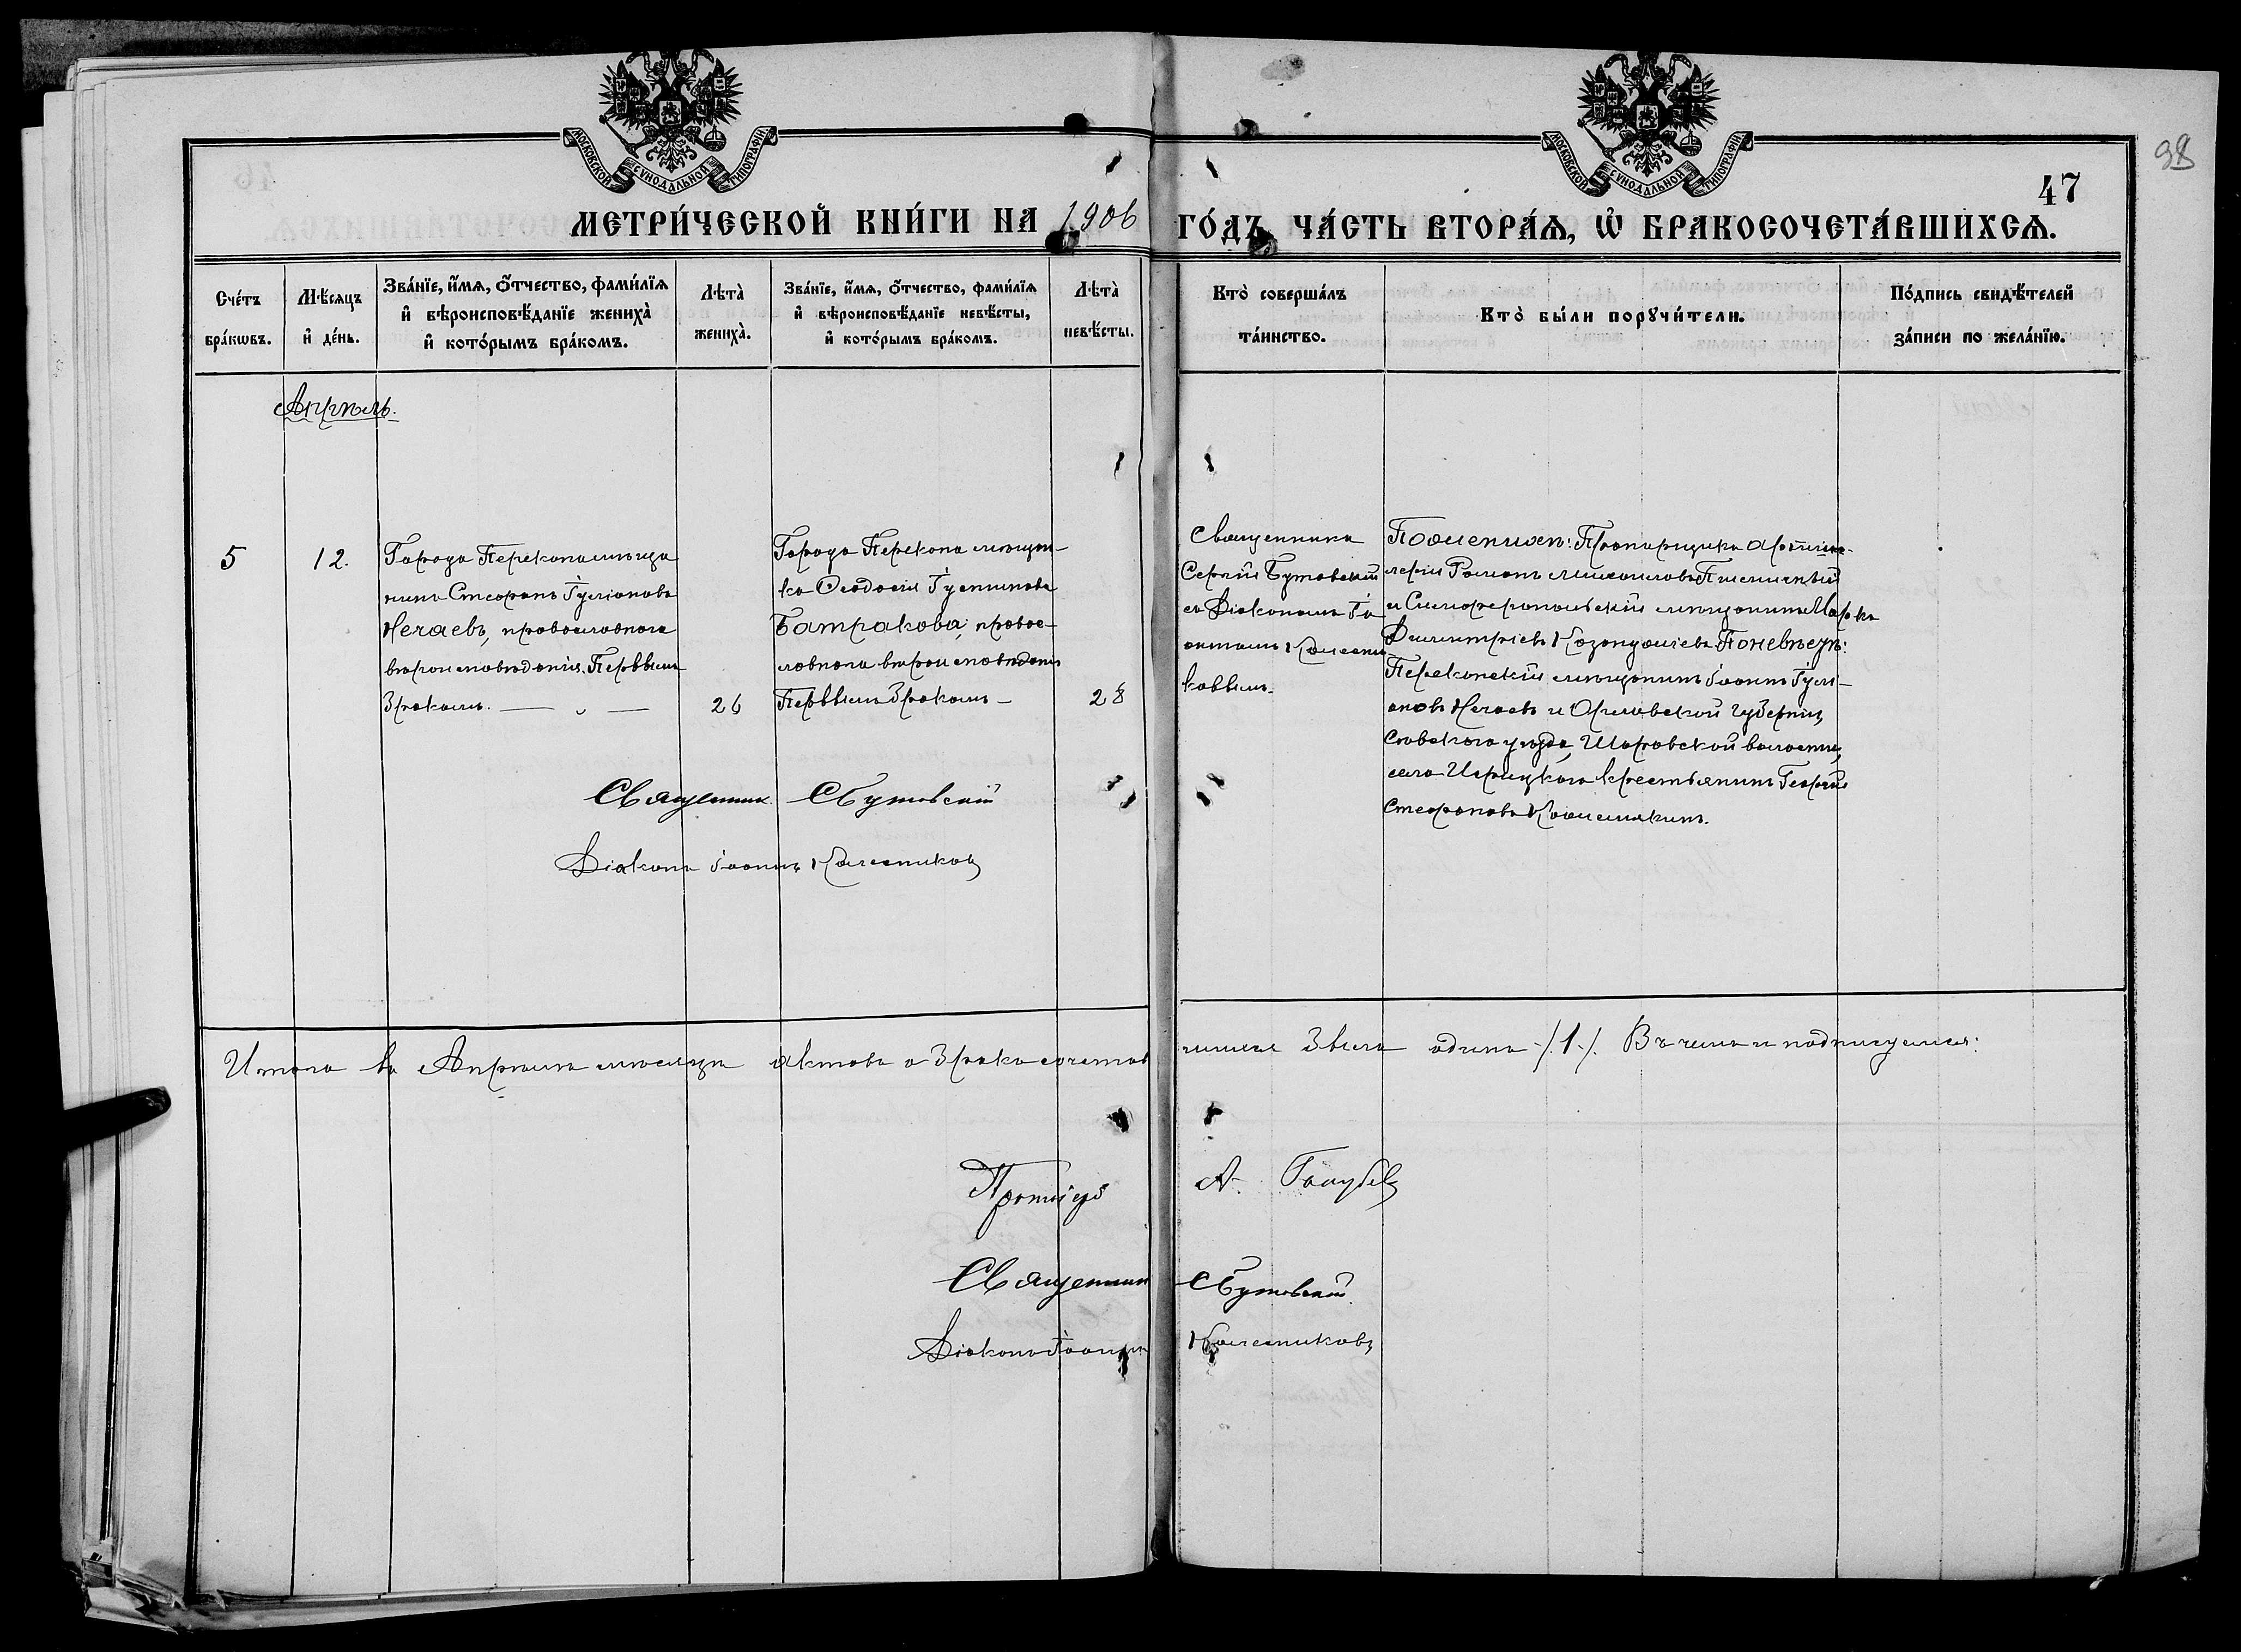 МОСКОВСКОЙ СѴНОДАЛЬНОЙ ТИПОГРАФІИ
МОСКОВСКОЙ СѴНОДАЛЬНОЙ ТИПОГРАФІИ
98
47
МЕТРИ́ЧЕСКОЙ КНИ́ГИ НА 1906 ГО́ДЪ, ЧА́СТЬ ВТОРА́Ѧ, Ѡ҆ БРАКОСОЧЕТА́ВШИХСѦ.
Сче́тъ
бра́кѡвъ.
Мѣ́сѧцъ
и҆ де́нь.
Зва́нїе, и҆́мѧ, ѻ҆́тчество, фами́лїѧ
и҆ вѣроисповѣ́данїе жениха̀
и҆ кото́рымъ бра́комъ.
Лѣта̀
жениха̀.
Зва́нїе, и҆́мѧ, ѻ҆́тчество, фами́лїѧ
и҆ вѣроисповѣ́данїе невѣ́сты,
и҆ кото́рымъ бра́комъ.
Лѣта̀
невѣ́сты.
Кто̀ соверша́лъ
та́инство.
Кто̀ бы́ли порꙋчи́тели.
По́дпись свидѣ́телей
за́писи по жела́нїю.
Апрѣль.
5
12.
Города Перекопа мѣща
нинъ Стефанъ Іуліановъ
Нечаевъ, православнаго
вѣроисповѣданія. Первымъ
бракомъ. — „ —
26
Города Перекопа мѣщан-
ка Ѳеодосія Іустинова
Батракова; правос-
лавнаго вѣроисповѣданія
Первымъ бракомъ —
28
Священникъ
Сергій Бутовскій
съ Діакономъ Іо
анномъ Колесни
ковымъ.
По женихѣ: Прапорщикъ Артил-
леріи Романъ Михаиловъ Пшеничный
и Симферопольскій мѣщанинъ Марко
Димитріевъ Козонджіевъ По невѣстѣ:
Перекопскій мѣщанинъ Іоаннъ Іулі-
ановъ Нечаевъ и Орловской губерніи,
Сѣвскаго уѣзда, Шаровской волости,
села Игрицкаго крестьянинъ Георгій
Стефановъ
Священник. С Бутовскій
Діаконъ Іоаннъ Колесниковъ
Итого въ Апрѣлѣ мѣсяцѣ актовъ о бракосочетав шихся было одинъ /.1./. Въ чемъ и подписуемся:
Протоіерей А. Голубевъ
Священник С Бутовскій
Діаконъ Іоаннъ Колесниковъ